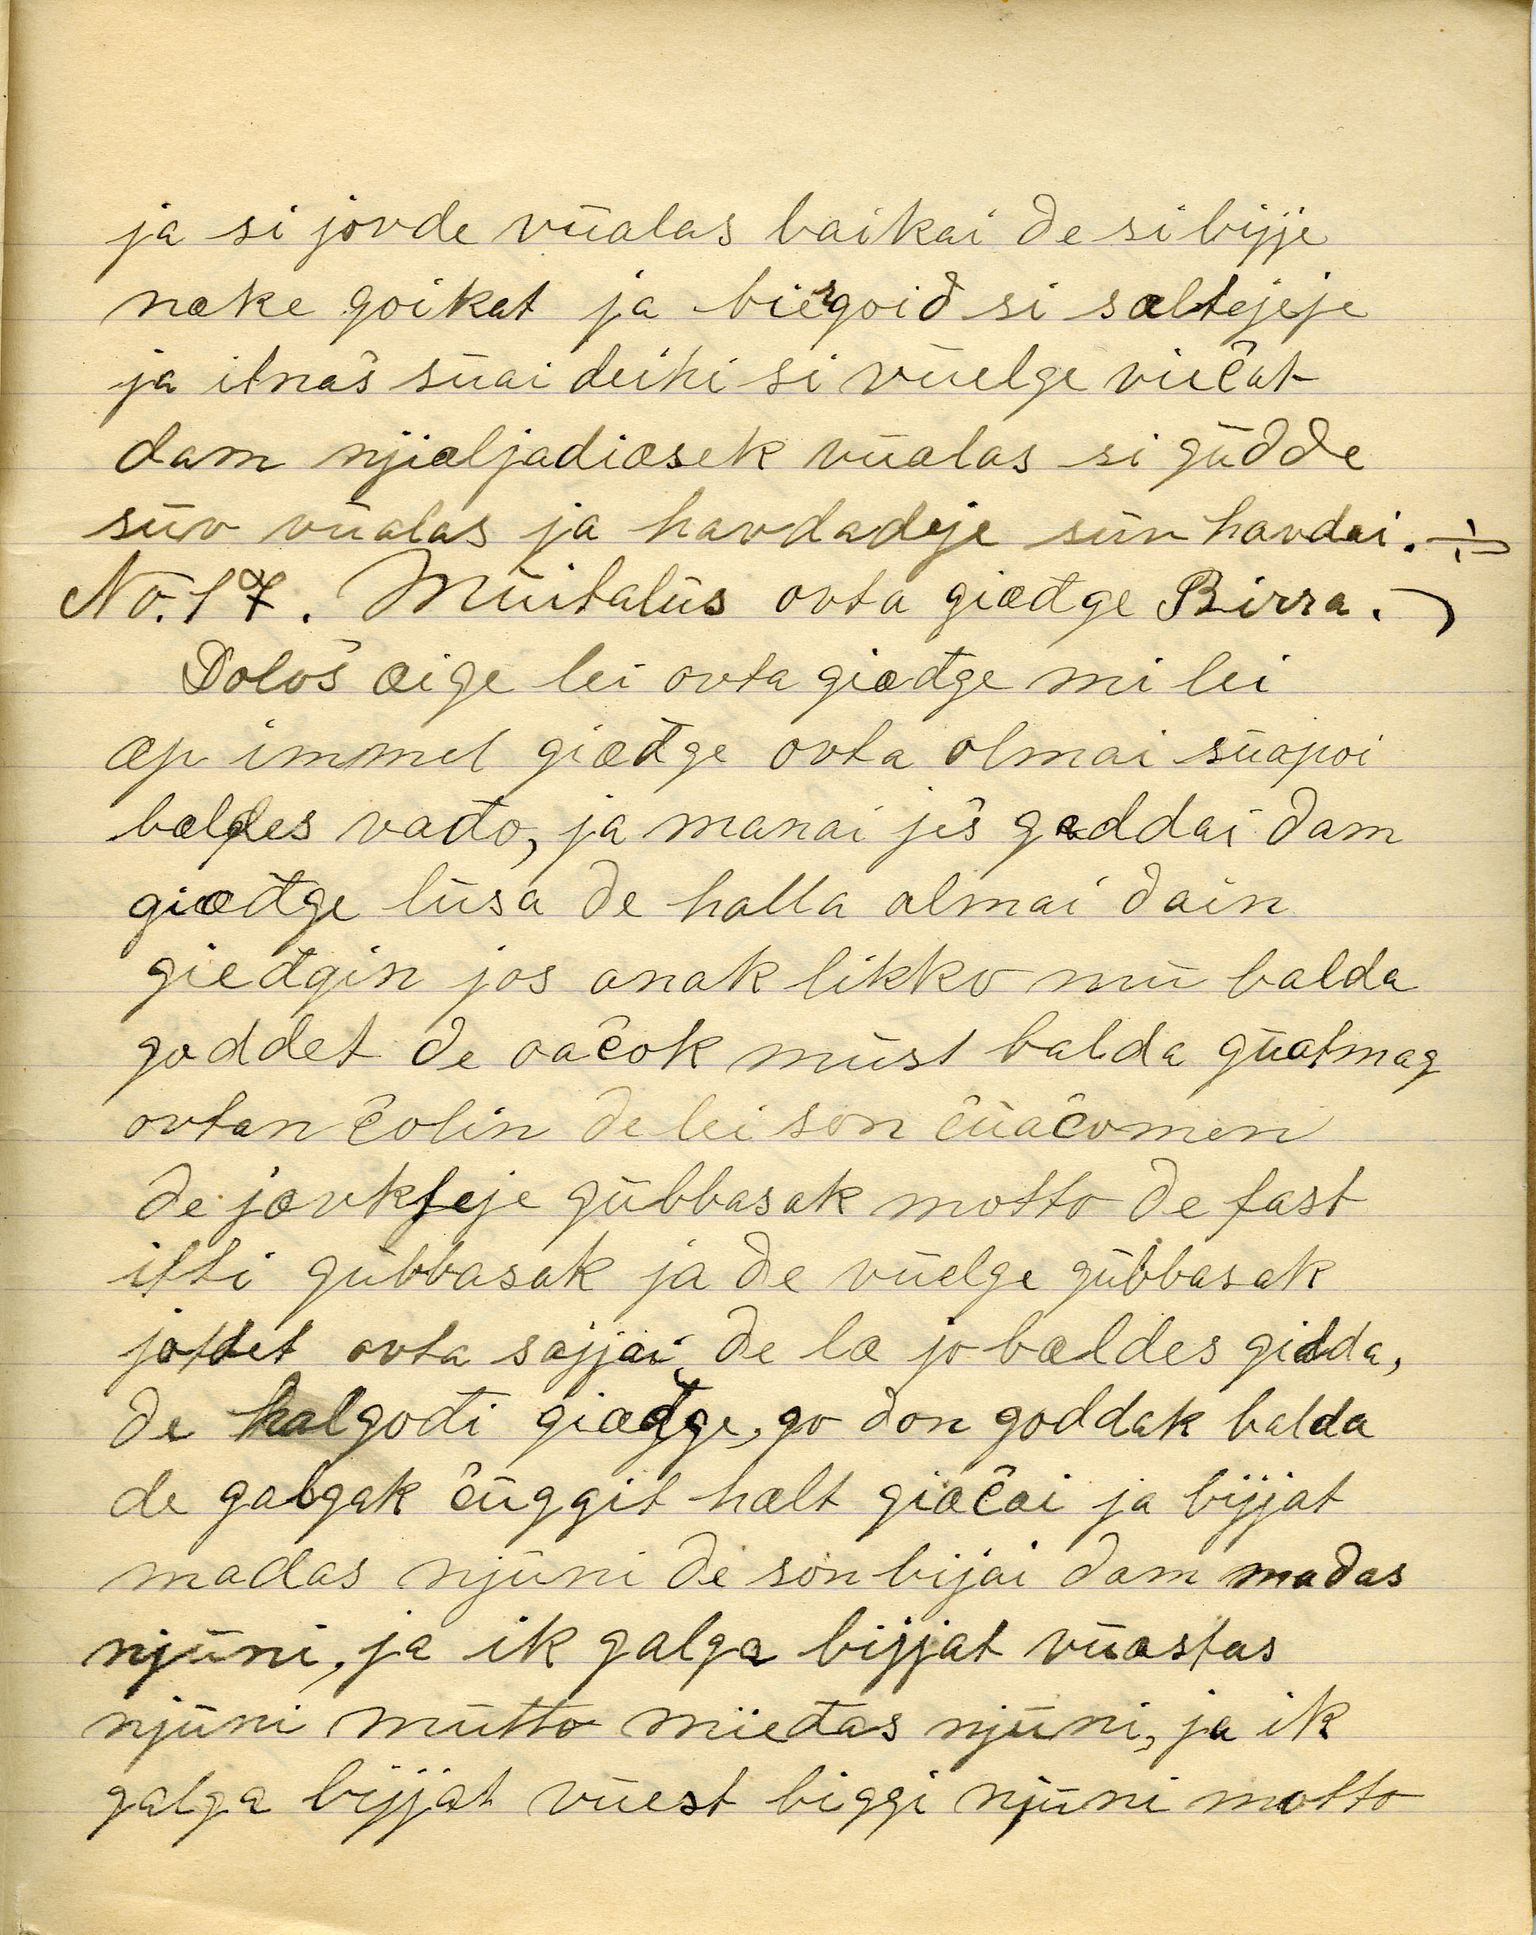 ja si jovde vüalas baikai de si bijje
nake goikat ja biergoid si sæltejeje
ja itnaš süai deihi si vüelge viečat
dam njiæljadiæsek vüalas si güdde
süv vüalas ja havdadeje sün havdai. ÷
No. 17. Müitalüs ovta giedtge Birra.
Dološ æige lei ovta giædtge mi lei
æp immel giæđge ovta olmai süapoi
bældes vađo, ja manai ješ gæddai dam
giæđtge lüsa de halla olmai dain
gieđgin jos anak likko mü balda
goddet de oačok müst balda güatmag
ovtan čolin de lei son čüačvomen
de jævkteje gübbasak motto de fast
itti gübbasak ja de vüelge gübbasak
jottet ovta sajjai, de læ jo bældes gidda,
de halgođi giæđge, go don goddak balda
de galgak čüggit hælt giæčai ja bijjat
madas njüni de son bijai dam madas
njüni, ja ik galga bijjat vüastas
njüni mütto mieđas njüni, ja ik
galga bijjat vüest biggi njüni motto